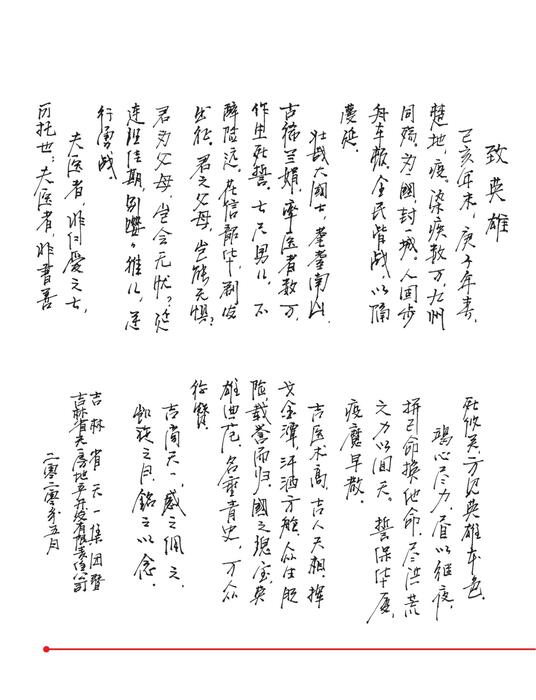 致英雄
己亥年末，庚子年春，
楚地，疫。染疾数万，九州
同殇，为国，封一城。人困步
舟车辍，全民皆战，以隔
蔓延。
壮哉大国士，耄耋南山，
古稀兰娟，率医者数万，
作生死誓。七尺男儿，不
辞险远，韶华，剃发
出征。君之父母，岂能无惧？
君为父母，岂会无忧？延
迟佳期，别嘤嘤稚儿，逆
行勇战
夫医者，非仁爱之士，
不可托也；夫医者，非
方见英雄本色。
竭心尽力，昼以继夜，
拼己命换他命，尽洪荒
之力以回天。誓保华夏，
疫魔早散。
吉医术高，吉人天相，挥
戈金潭，汗洒方舱，众仕脱
险，载誉而归。国之瑰宝，英
雄典范，名垂青史，万众
称赞。
吉尚天一，感之佩之，
之月，铭之以念。
吉林省天一集团暨
吉林省天房地产开发有限责任公司
二零二零年五月